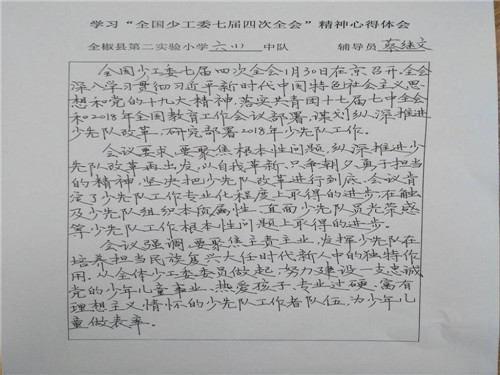 学习“全国少工委七届四次全会”精神心得体会
全椒县第二实验小学六(1)中队 辅导员 蔡继文
全国少工委七届四次全会1月30日在京召开.全会
深入学习贯彻习近平新时代中国特色社会主义思
想和党的十九大精神,落实共青团十七届七中全会
和2018年全国教育工作会议部署,谋划纵深推进
少先队改革,研究部署2018年少先队工作。
会议要求,要聚焦根本性问题,纵深推进少
先队改革再出发,以自我革新、只争朝夕、勇于担当
的精神,坚决把少先队改革进行到底.会议肯
定了少先队工作专业化程度上取得的进步;在触
及少先队组织本质属性、直面少先队员光荣感
等少先队工作根本性问题上取得的进步。
会议强调,要聚焦主责主业,发挥少先队在
培养担当民族复兴大任时代新人中的独特作
用.从全体少工委委员做起,努力建设一支忠诚
党的少年儿童事业、热爱孩子、专业过硬、富有
理想主义情怀的少先队工作者队伍,为少年儿
童做表率。